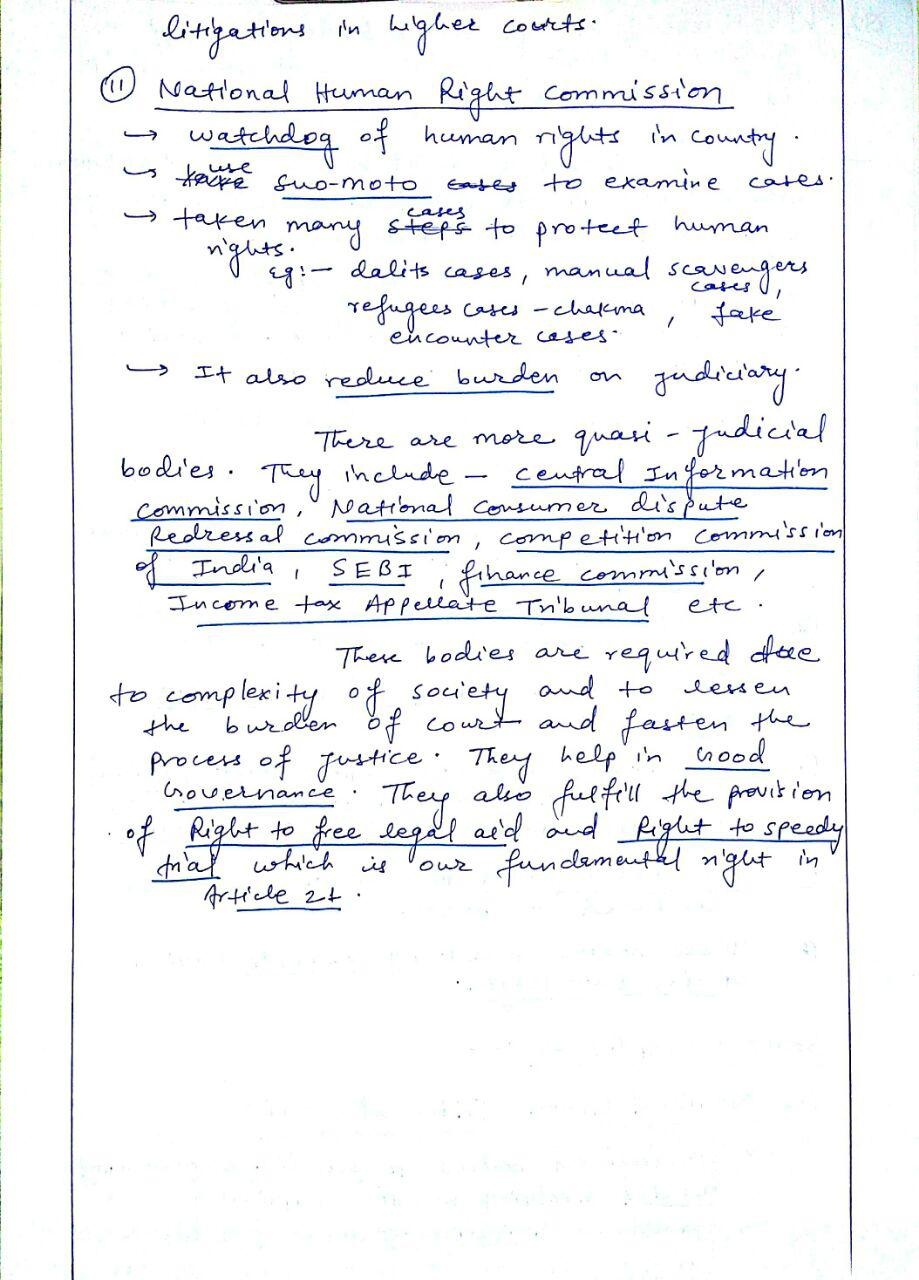 litigations in higher courts.
(11) National Human Right Commission
→ watchdog of human rights in country.
use
↳ take suo-moto cases to examine cases.
cases
→ taken many steps to protect human
rights.
eg:- dalits cases, manual scavengers
cases,
refugees cases - chakma, fake
encounter cases.
→ It also reduce burden on judiciary.
There are more quasi-judicial
bodies. They include - central Information
commission, National Consumer dispute
Redressal commission, competition commission
of India, SEBI, finance commission,
Income tax Appellate Tribunal etc.
These bodies are required due
to complexity of society and to lessen
the burden of court and fasten the
process of justice. They help in Good
Governance. They also fulfill the provision
of Right to free legal aid and Right to speedy
trial which is our fundamental right in
Article 21.